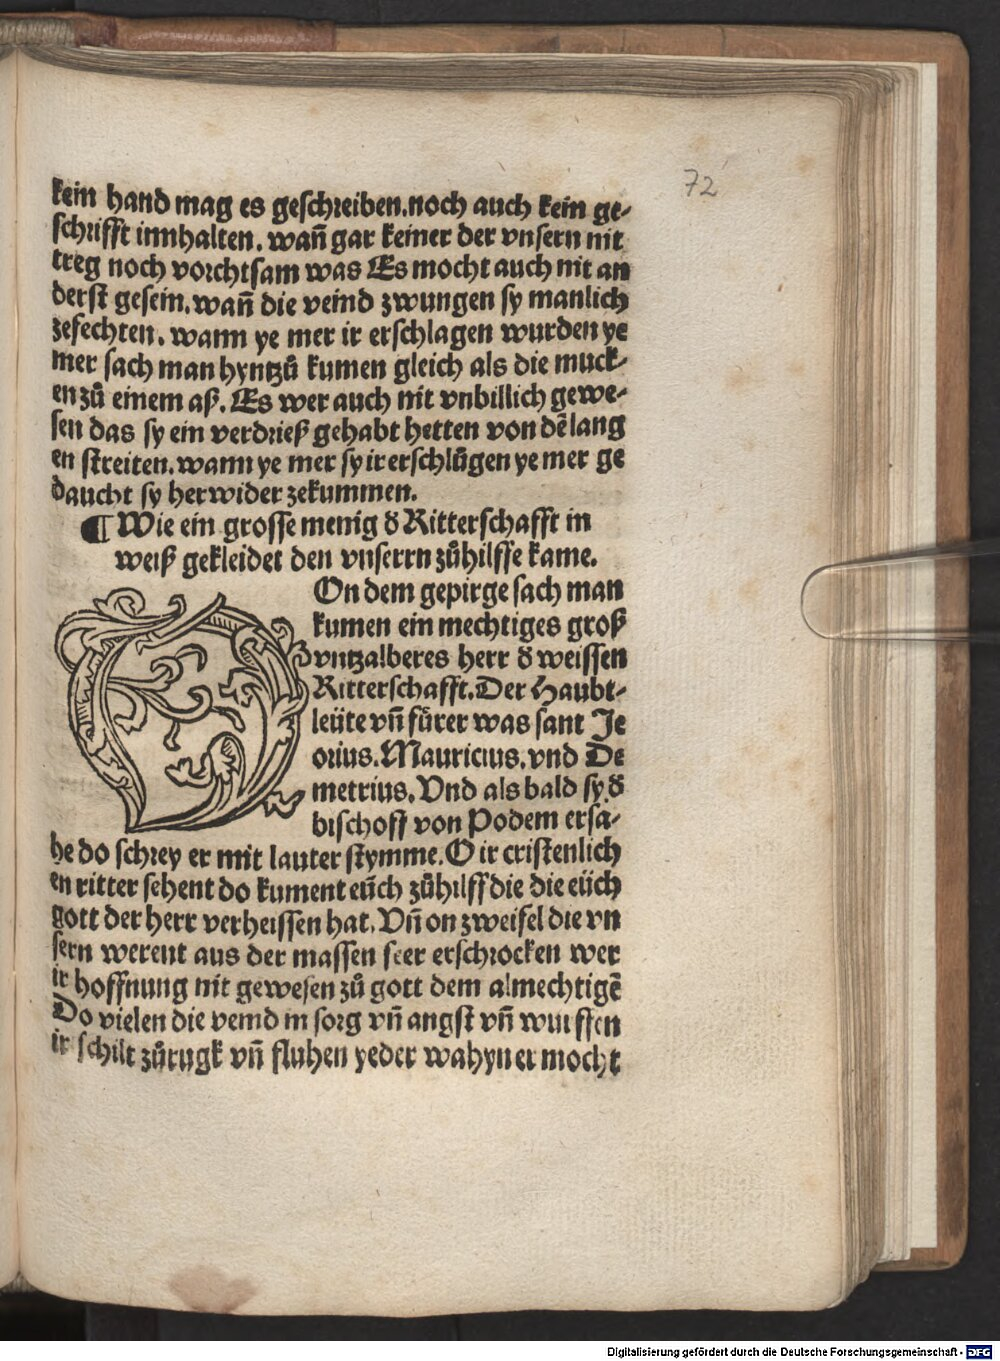 72
kein hand mag es geschreiben.noch auch kein ge-
schrifft innhalten. wañ gar keiner der vnsern nit
treg noch vorchtsam was Es mocht auch nit an
derst gesein.wañ die veind zwungen sy manlich
zefechten. wann ye mer ir erschlagen wurden ye
mer sach man hyntzů kumen gleich als die muck-
en zů einem aß. Es wer auch nit vnbillich gewe-
sen das sy ein verdrieß gehabt hetten von dẽ lang
en streiten.wann ye mer sy ir erschlůgen ye mer ge
daucht sy her wider zekummen.
¶ Wie ein grosse menig đ Ritterschafft in
weiß gekleidet den vnserrn zůhilffe kame.
VOn dem gepirge sach man
kumen ein mechtiges groß
vntzalberes herr đ weissen
Ritterschafft.Der Haubt-
leüte vñ fürer was sant Je
orius.Mauricius.vnd De
metrius. Vnd als bald sy đ
bischoff von Podem ersa-
he do schrey er mit lauter stymme.O ir cristenlich
en ritter sehent do kument eüch zůhilff die die eüch
gott der herr verheissen hat. Vñ on zweifel die vn
sern werent aus der massen seer erschrocken wer
ir hoffnung nit gewesen zů gott dem almechtigẽ
Do vielen die veind in sorg vñ angst vñ wurffen
ir schilt zůrugk vñ fluhen yeder wahyn er mocht
Digitalisierung gefördert durch die Deutsche Forschungsgemeinschaft - DFG